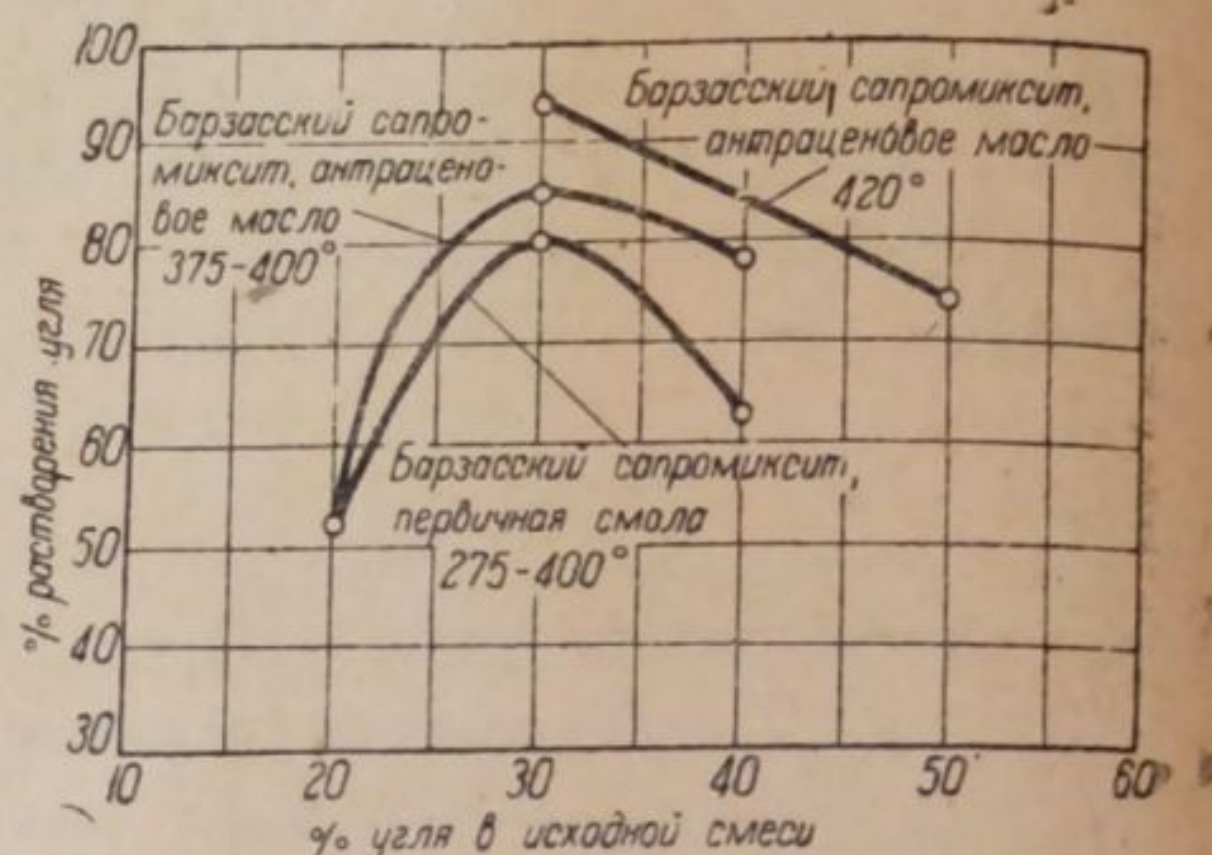 100
90
80
70
60
50
40
30
% растварения угля
Барзасский сапро-
миксит, антрацено-
вое масло
375-400°
Барзасский сапромиксит,
антраценовое масло
420°
Барзасский сапромиксит,
первичная смола
275-400°
10 20 30 40 50 60
% угля в исходной смеси